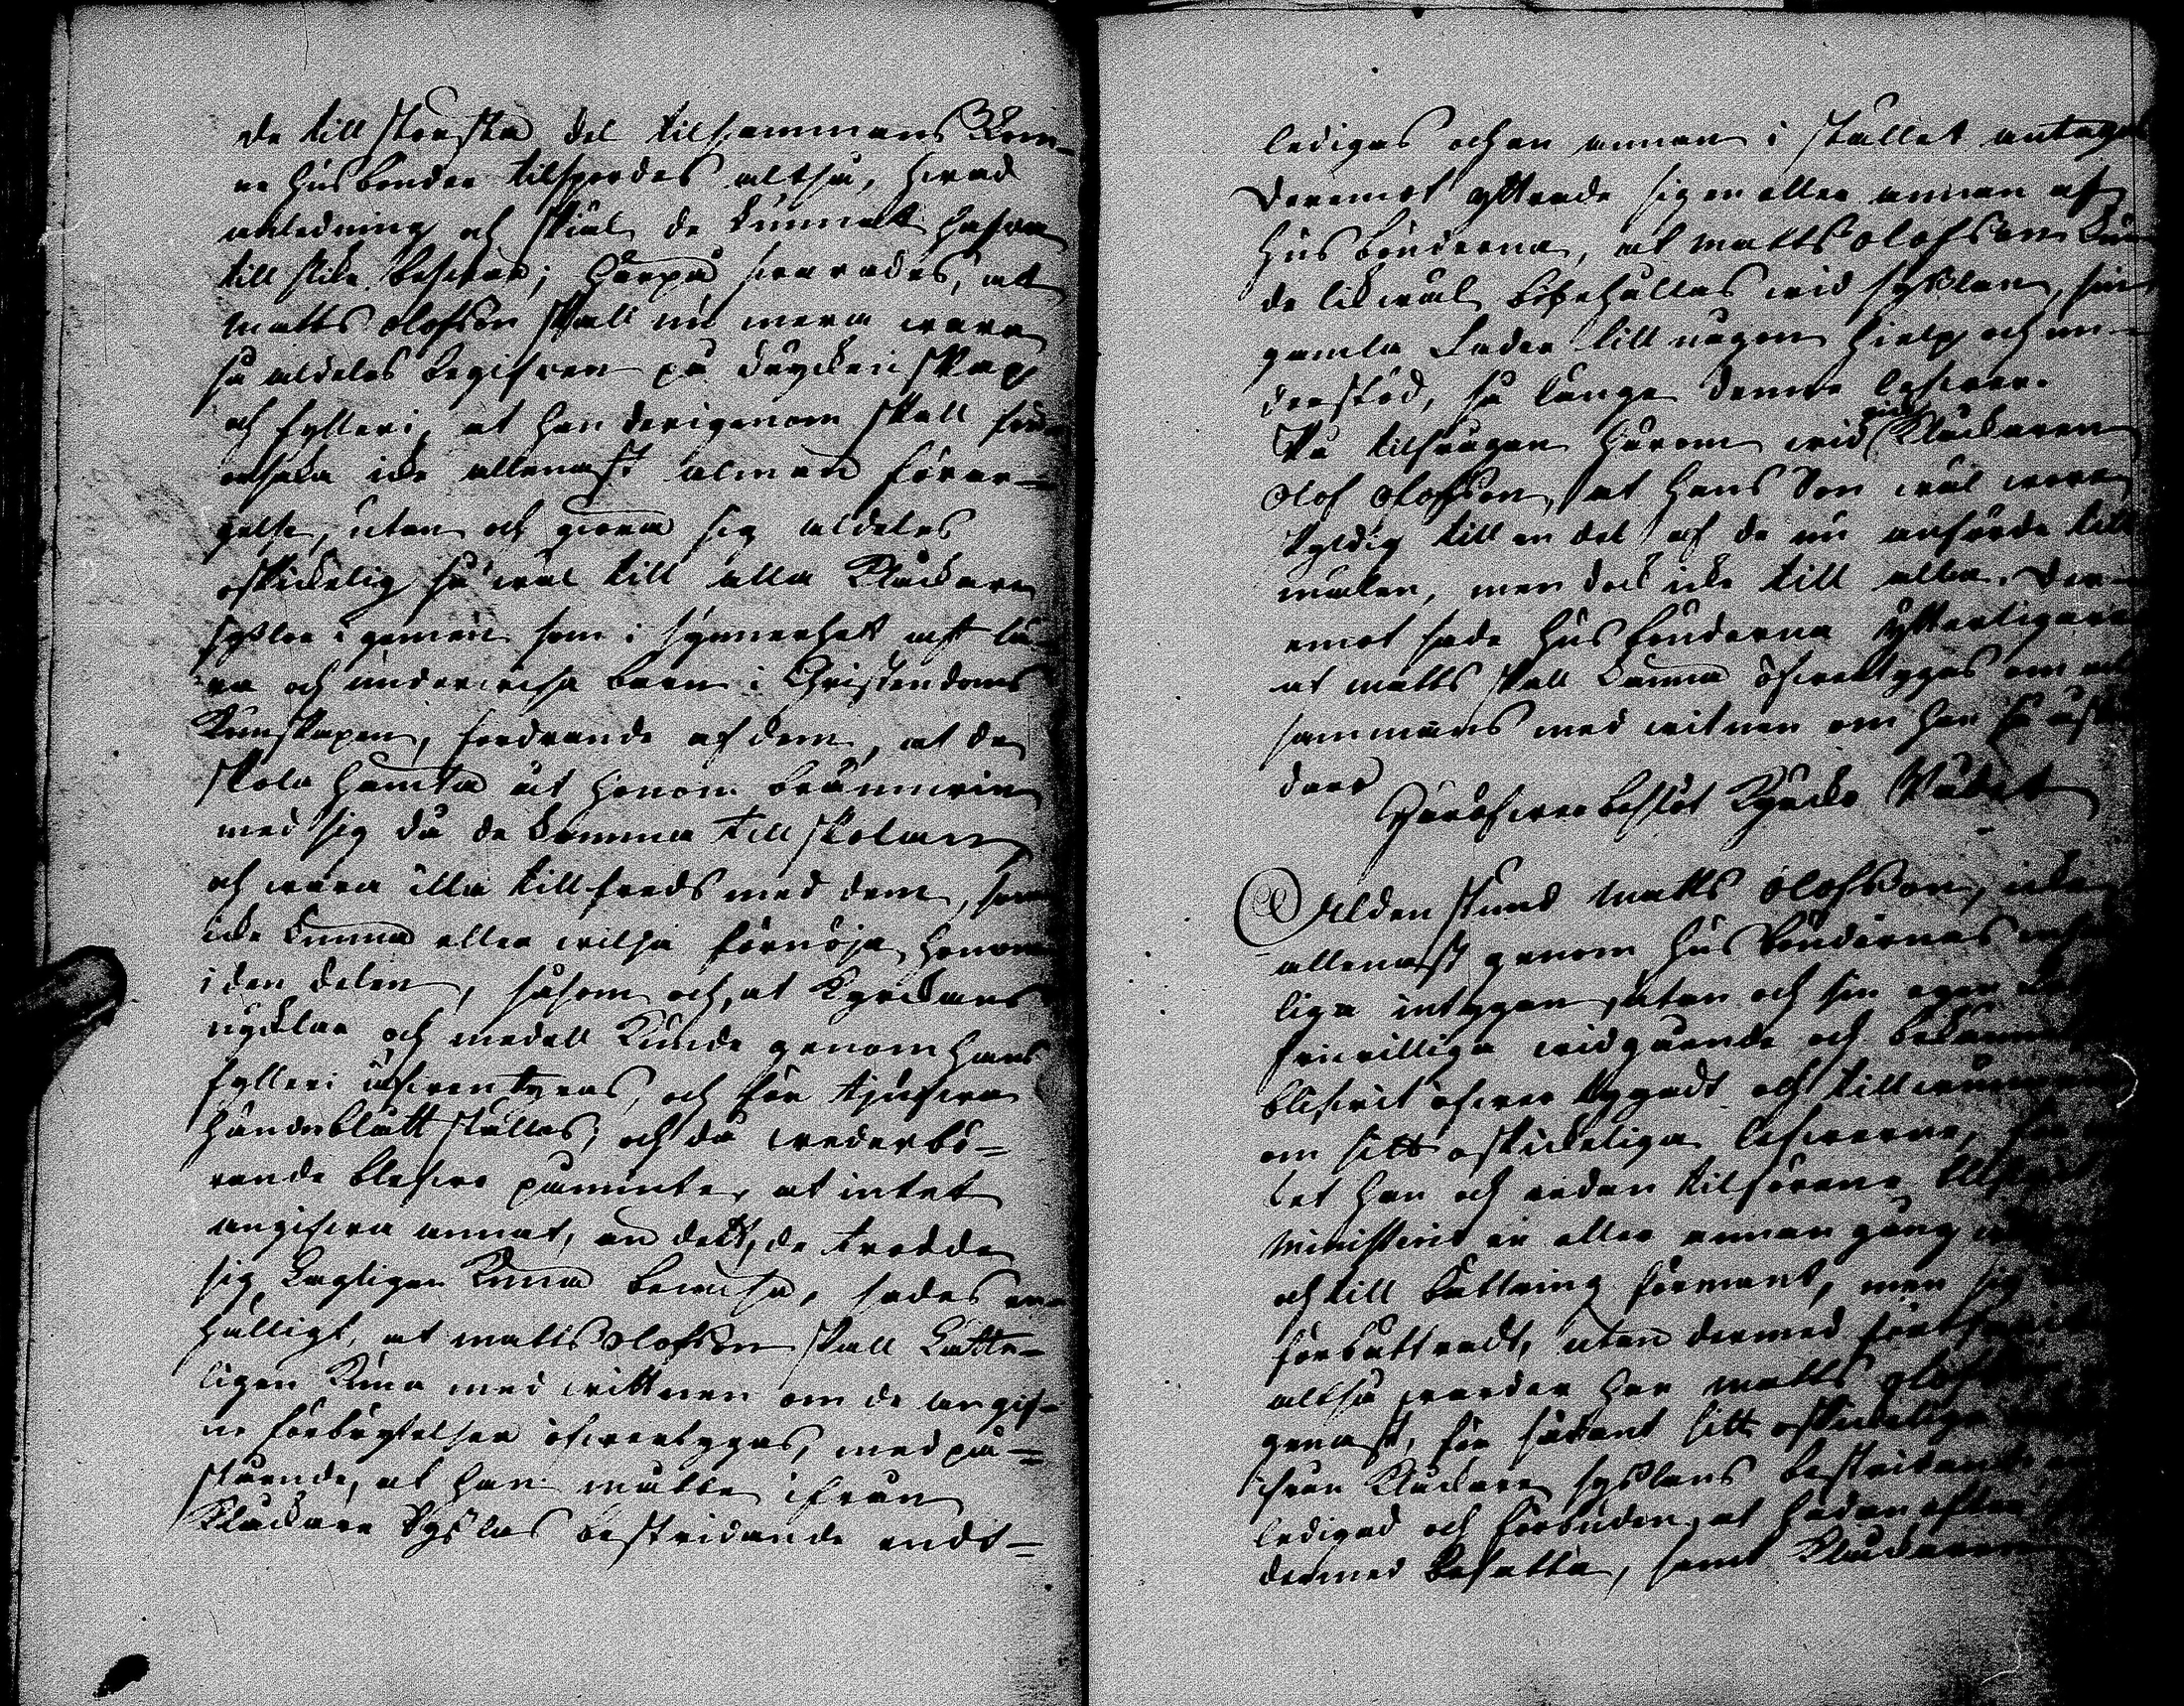 de till största del tilsammans kom-
ne husbönder tilspordes altså, hvad
anledning och skiäl de kunnatt hafwa
till slike beswär; härpå swarades, att
Matts Olofson skall nu mera wara
så aldeles begifwen på dryckenskap
och fylleri, at han derigenom skall
orsaka icke allenast almen förar-
gelse, utan och giöra sig aldeles
oskickelig så wäl till alla Klåckare
sysslor i gemen som i synnerhet att lä-
ra och underwisa barn i Christendoms
Kunskapen, fordrande af dem, at de
skola hämta åt honom brännwin
med sig då de komma till skolan
och wara illa tillfreds med dem, som
icke kunna eller wilja förnöja honom
i den delen, såsom och, at Kyrckans
nycklar och medell kunde genom hans
fylleri äfwentyras, och för tjufwa
händer blått ställas; och då wederbö-
rande blefwo påminte, at intet
angifwa annat, än dett, de trodde
sig Lagligen kunna bewisa, sades en-
hälligt, at Matts Olofson skall Lätte-
ligen kuna med wittnen om de angif-
ne förbrytelser öfwertygas, med på-
stående, at han måtte ifrån
Klåckare Sysslas bestridande endt-
ledigas och en annan i stället antagas
Deremot yttrade sig en eller annan af
husbönderna, at Matts Olofsson kun-
de likwäl bibehållas wid sysslan, sin
gamla Fader till någon hielp och un-
derstöd, så länge denne lefwer.
På tilfrågan härom wid Klåckaren
Olof Olofsson, at hans Son wäl wore
skyldig till en del af de nu anförde till
målen, men dock icke till alla. Der-
emot sade husbönderna ytterligare
at Matts skall kunna öfwertygas om alt
sammans med witnen om han så åstun
dar
Häröfwer beslöt Kyrcko Rådet
Alden stund Matts Olofsson, icke
allenast genom husböndernas
liga intygan, utan och sin egen
friwilliga widgående och bekännelse
blifwit öfwer tygadt och till wunnen
om sitt oskickeliga lefwerne,
let han och redan tilförene
Ministerio en eller annan gång
och till bättring förmant, men sig
förbättradt, utan dermed fortfarit
altså warder han Matts Olofsson
genast, för sådant sitt oskickeliga
ifrån Klåckare sysslans bestridande
ledigad och förbuden, at hädanefter
dermed befatta, samt Klåckaren